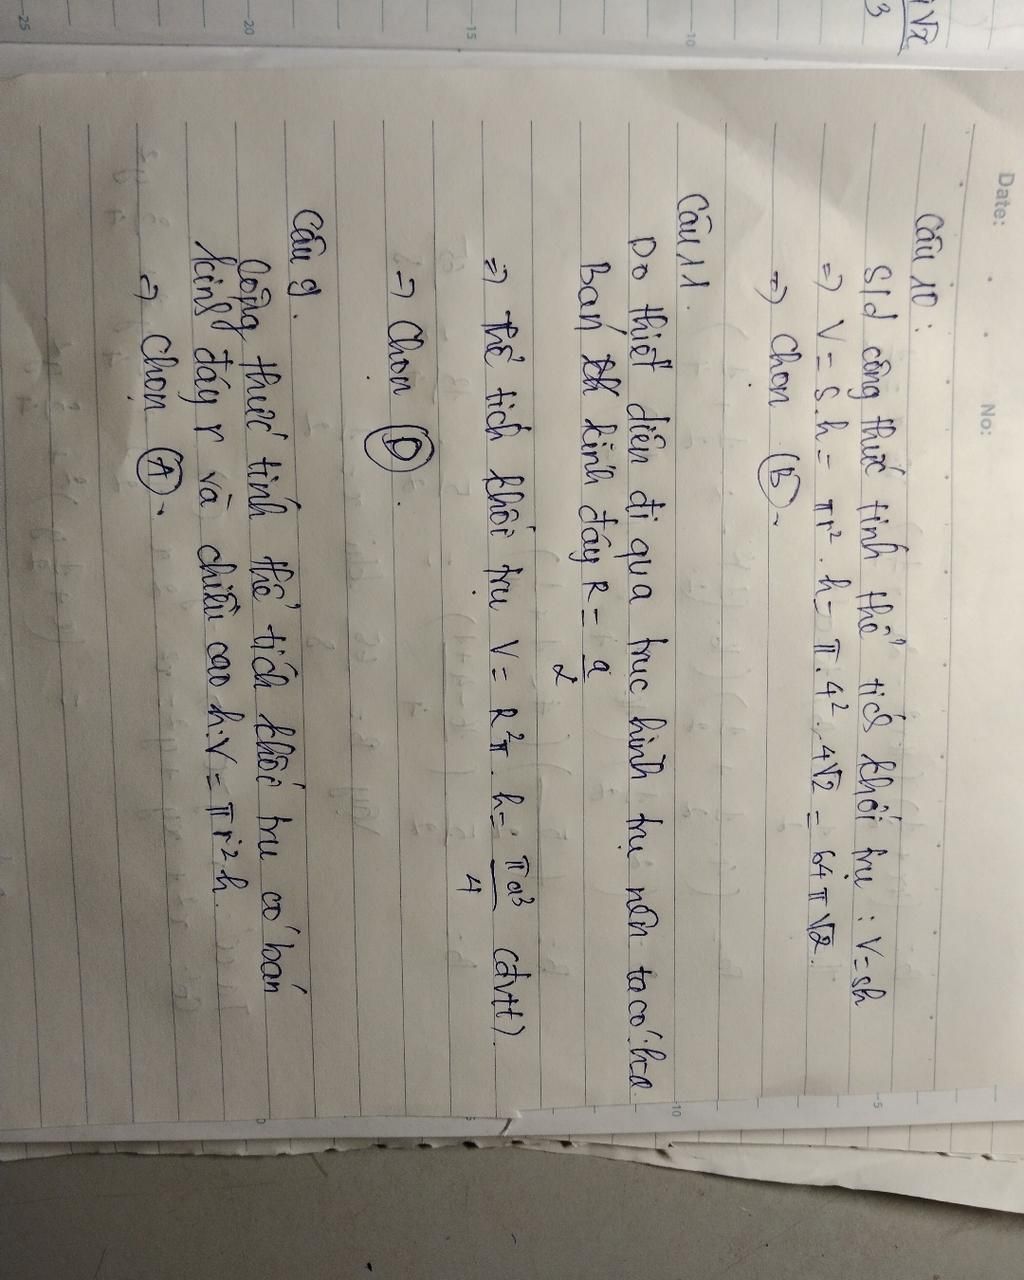 Date: No:
Câu 10:
S/d công thức tính thể tích khối trụ : V=Sh
=> V = S.h = πr². h = π.4².4√2 = 64π√2.
=> Chọn (B).
Câu 11.
Do thiết diện đi qua trục hình trụ nên ta có: h=a.
Bán kính đáy R = a/2
=> thể tích khối trụ V = R²π.h = πa³/4 (đvtt).
=> Chọn (D).
Câu 9.
Công thức tính thể tích khối trụ có bán
kính đáy r và chiều cao h: V = πr²h.
=> Chọn (A).
√x
3
-25
-20
-15
-10
-5
0
5
-10